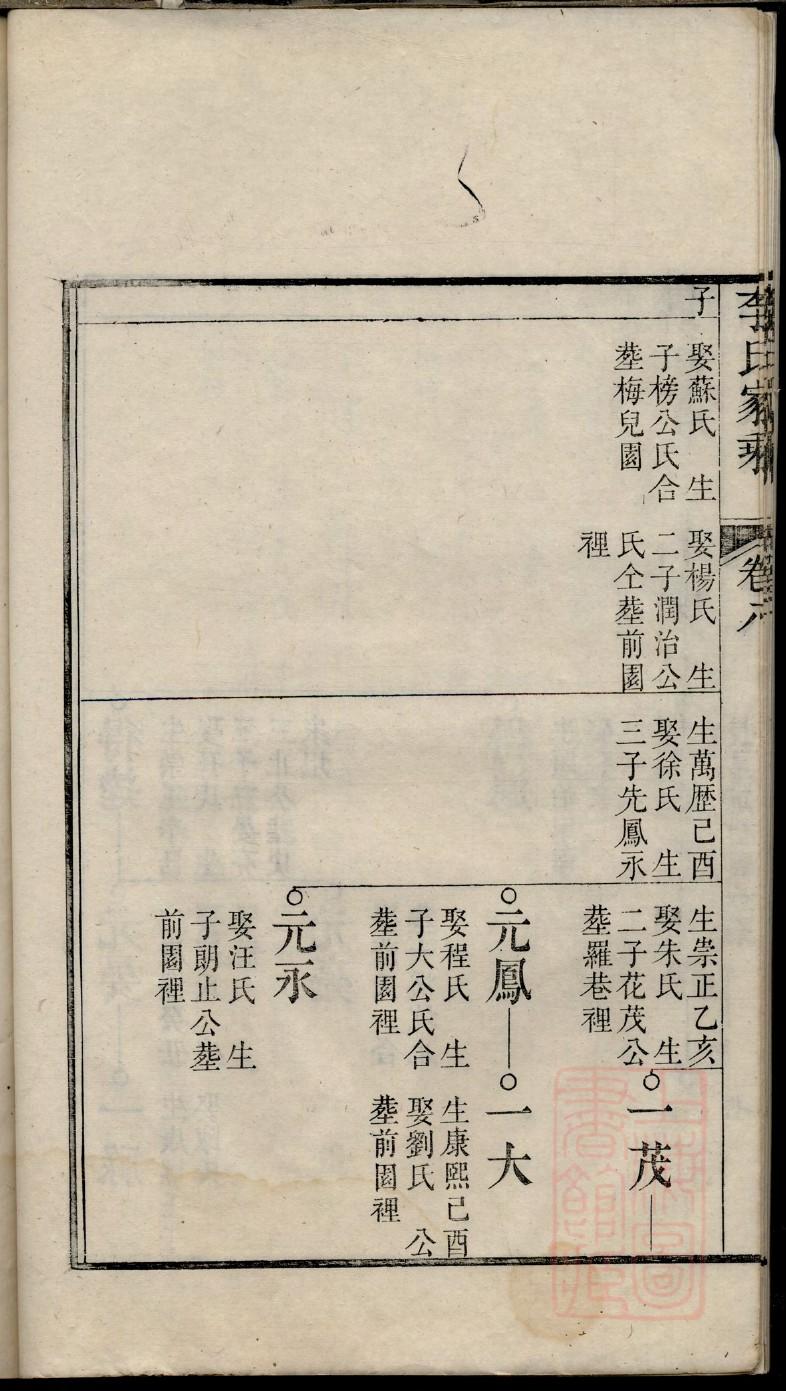 李氏家乘
卷六
子
娶蘇氏 生
子榜公氏合
塟梅兒園
娶楊氏 生
二子潤治公
氏仝塟前園
裡
生萬歷己酉
娶徐氏 生
三子先鳳永
生崇正乙亥
娶朱氏 生
二子花茂公
塟羅巷裡
一茂
元鳳
娶程氏 生
子大公氏合
塟前園裡
一大
生康熙己酉
娶劉氏 公
塟前園裡
元永
娶汪氏 生
子朗止公塟
前園裡